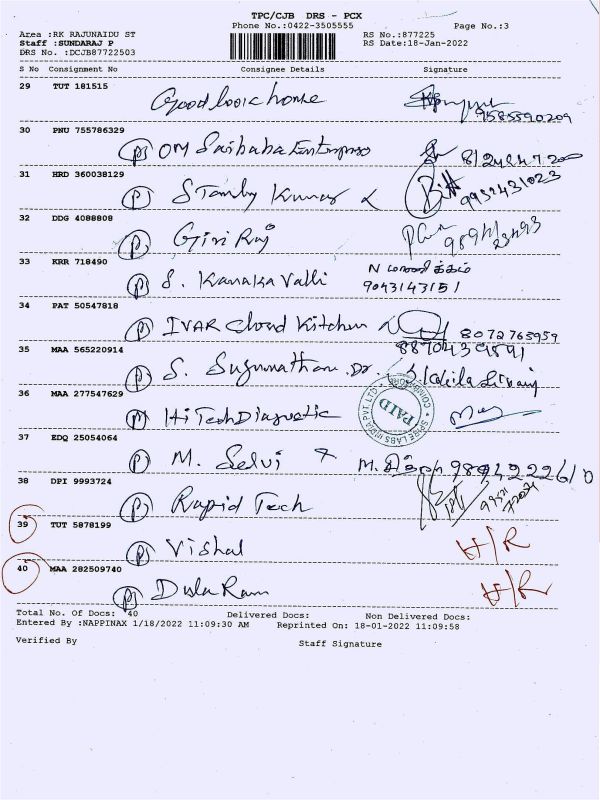 TPC/CJB DRS - PCX
Phone No.:0422-3505555 Page No.:3
Area :RK RAJUNAIDU ST RS No.:877225
Staff :SUNDARAJ P RS Date:18-Jan-2022
DRS No. :DCJB87722503
S No Consignment No Consignee Details Signature
29 TUT 181515 Good look home 9585590209
30 PNU 755786329 (P) OM Saibaba Enterprises
31 HRD 360038129 (P) Stanly Kumar 9952431023
32 DDG 4088808 (P) Giri Raj
33 KRR 718490 (P) S. Kanaka Valli N
9043143151
34 PAT 50547818 (P) IVAR Cloud Kitchen 8072765959
35 MAA 565220914 (P) S. Sugunathan. Dr.
36 MAA 277547629 (P) Hi Tech Diagnostic
COIMBATORE SPIRE LABS INDIA PVT. LTD PAID
37 EDQ 25054064 (P) M. Selvi M.
38 DPI 9993724 (P) Rapid Tech
39 TUT 5878199 (P) Vishal H/R
40 MAA 282509740 (P) Dula Ram H/R
Total No. Of Docs: 40 Delivered Docs: Non Delivered Docs:
Entered By :NAPPINAX 1/18/2022 11:09:30 AM Reprinted On: 18-01-2022 11:09:58
Verified By Staff Signature